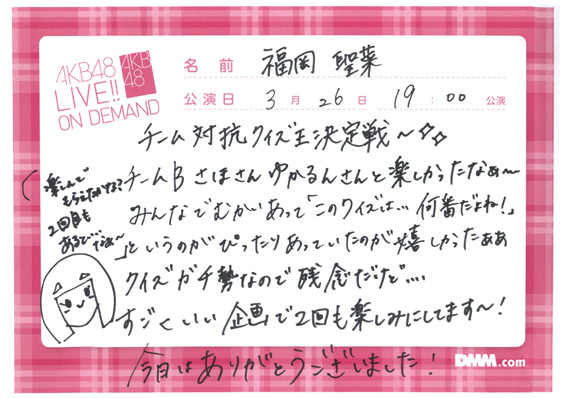 AKB48
LIVE!!
ON DEMAND
AKB
48
名前 福岡 聖菜
公演日 3月26日 19:00 公演
チーム対抗クイズ王決定戦〜☆☆
チームB さほさん ゆかるんさんと楽しかったなぁ〜
みんなでむかいあって「このクイズは…何番だよね!」
」というのがぴったりあっていたのが嬉しかったぁぁ
クイズガチ勢なので残念だけど....
すごくいい企画で2回も楽しみにしてます〜!
今日はありがとうございました!
楽しんで
もらえたかな?
2回目も
あるで…なぁ〜
DMM.com